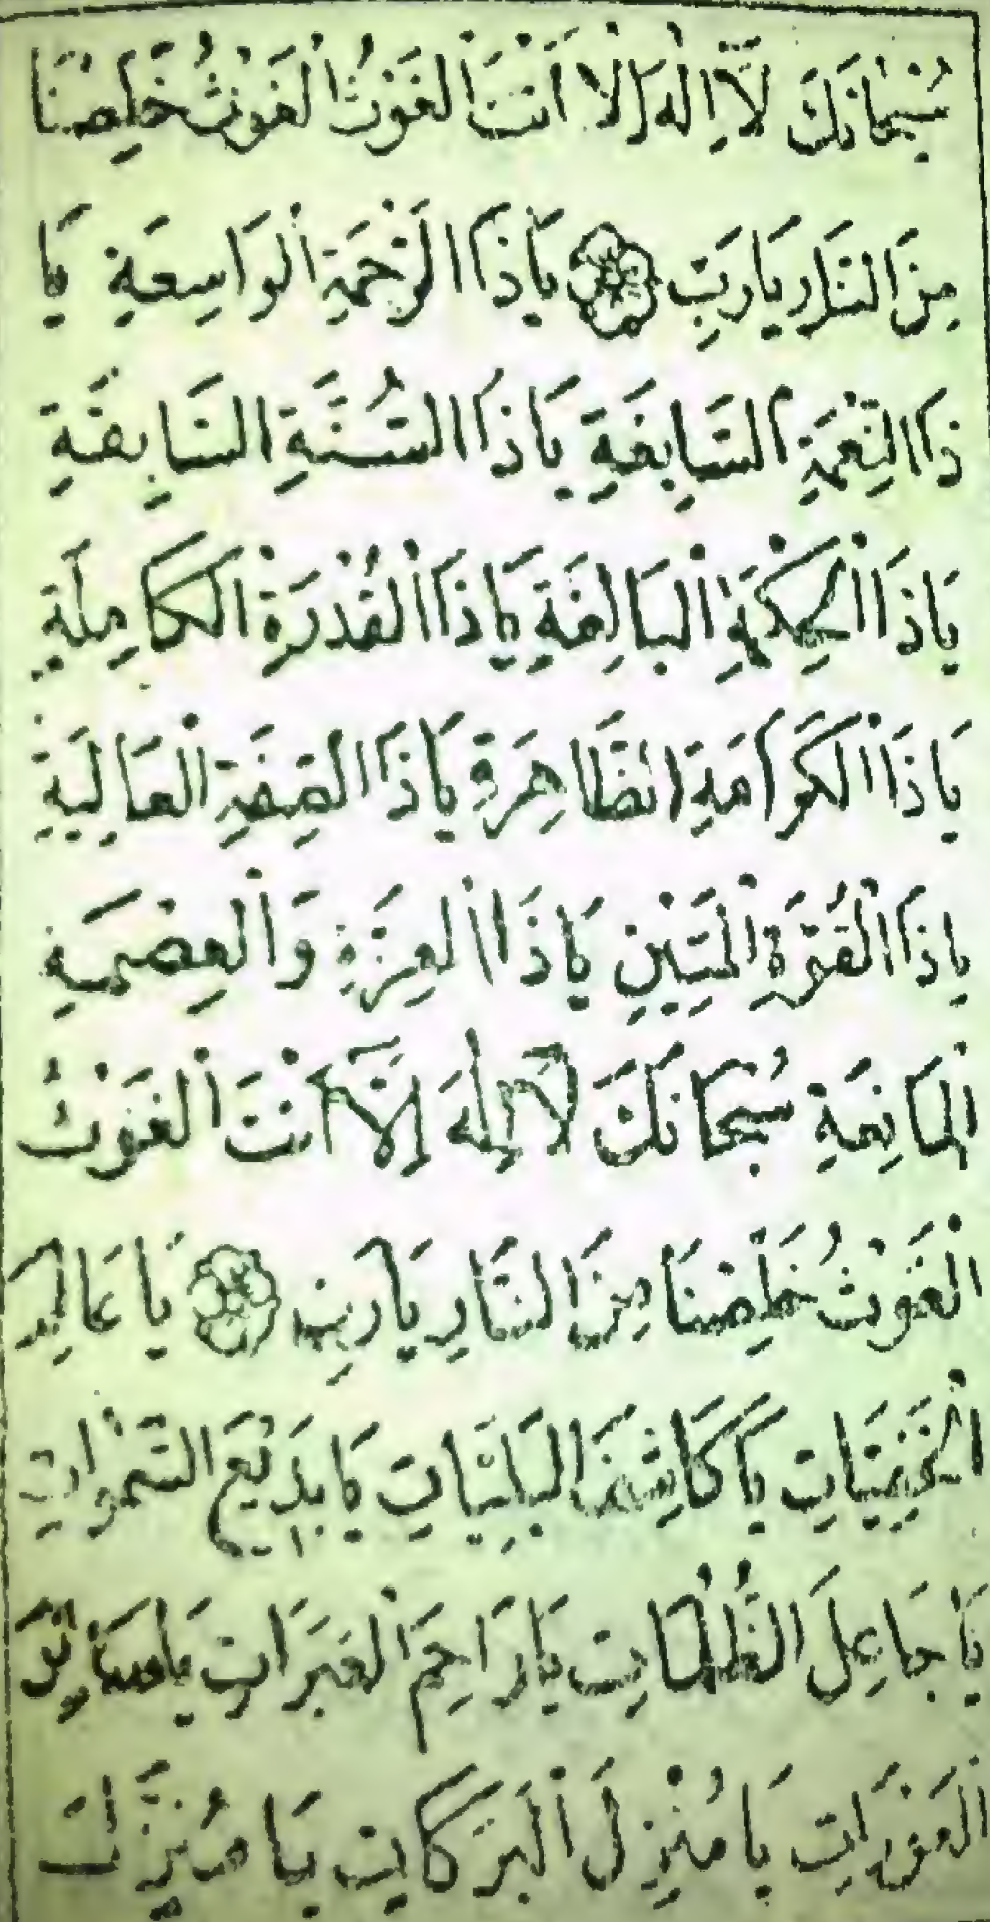 سُبْحَانَكَ لَآ اِلٰهَ اِلَّا اَنْتَ الْغَوْثُ الْغَوْثُ خَلِّصْنَا
مِنَ النَّارِ يَارَبِّ يَاذَا الرَّحْمَةِ الْوَاسِعَةِ يَا
ذَا النِّعْمَةِ السَّابِغَةِ يَاذَا السُّنَّةِ السَّابِقَةِ
يَاذَا الْحِكْمَةِ الْبَالِغَةِ يَاذَا الْقُدْرَةِ الْكَامِلَةِ
يَاذَا الْكَرَامَةِ الظَّاهِرَةِ يَاذَا الصِّفَةِ الْعَالِيَةِ
يَاذَا الْقُوَّةِ الْمَتِينِ يَاذَا الْعِزَّةِ وَالْعِصْمَةِ
الْمَانِعَةِ سُبْحَانَكَ لَآ اِلٰهَ اِلَّآ اَنْتَ الْغَوْثُ
الْغَوْثُ خَلِّصْنَا مِنَ النَّارِ يَارَبِّ يَا عَالِمَ
الْخَفِيَّاتِ يَا كَاشِفَ الْبَلِيَّاتِ يَا بَدِيْعَ السَّمٰوَاتِ
يَا جَاعِلَ الظُّلُمَاتِ يَارَاحِمَ الْعَبَرَاتِ يَا
الْعَوْرَاتِ يَا مُنْزِلَ الْبَرَكَاتِ يَا